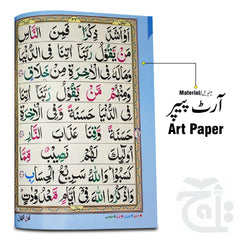 اَوۡ اَشَدَّ ذِكۡرًا ؕ فَمِنَ النَّاسِ
مَنۡ يَّقُوۡلُ رَبَّنَاۤ اٰتِنَا فِى الدُّنۡيَا
وَمَا لَهٗ فِى الۡاٰخِرَةِ مِنۡ خَلَاقٍ
وَمِنۡهُمۡ مَّنۡ يَّقُوۡلُ رَبَّنَاۤ اٰتِنَا
فِى الدُّنۡيَا حَسَنَةً وَّفِى الۡاٰخِرَةِ
حَسَنَةً وَّقِنَا عَذَابَ النَّارِ
اُولٰٓٮِٕكَ لَهُمۡ نَصِيۡبٌ مِّمَّا
كَسَبُوۡا ؕ وَاللّٰهُ سَرِيۡعُ الۡحِسَابِ
وَاذۡكُرُوا اللّٰهَ فِىۡٓ اَيَّامٍ مَّعۡدُوۡدٰتٍ
Material
آرٹ پیپر
Art Paper